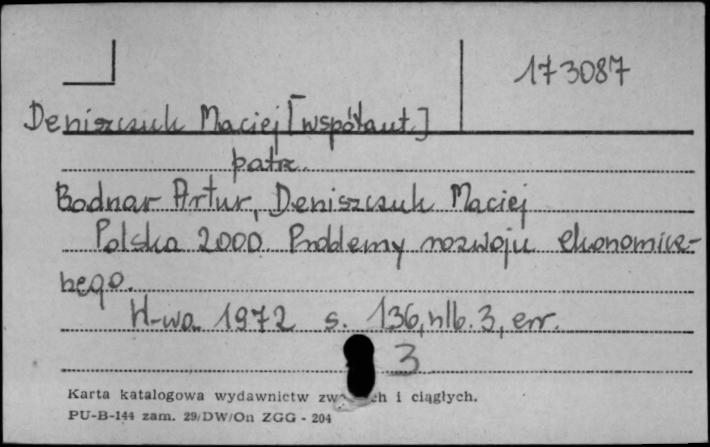 173087
Deniszczuk Maciej [współaut.]
patrz.
Bodnar Artur, Deniszczuk Maciej
Polska 2000. Problemy rozwoju ekonomicz-
nego.
W-wa 1972 s. 136, nlb. 3, err.
3
Karta katalogowa wydawnictw i ciągłych.
PU-B-144 zam. 29/DW/On ZGG - 204